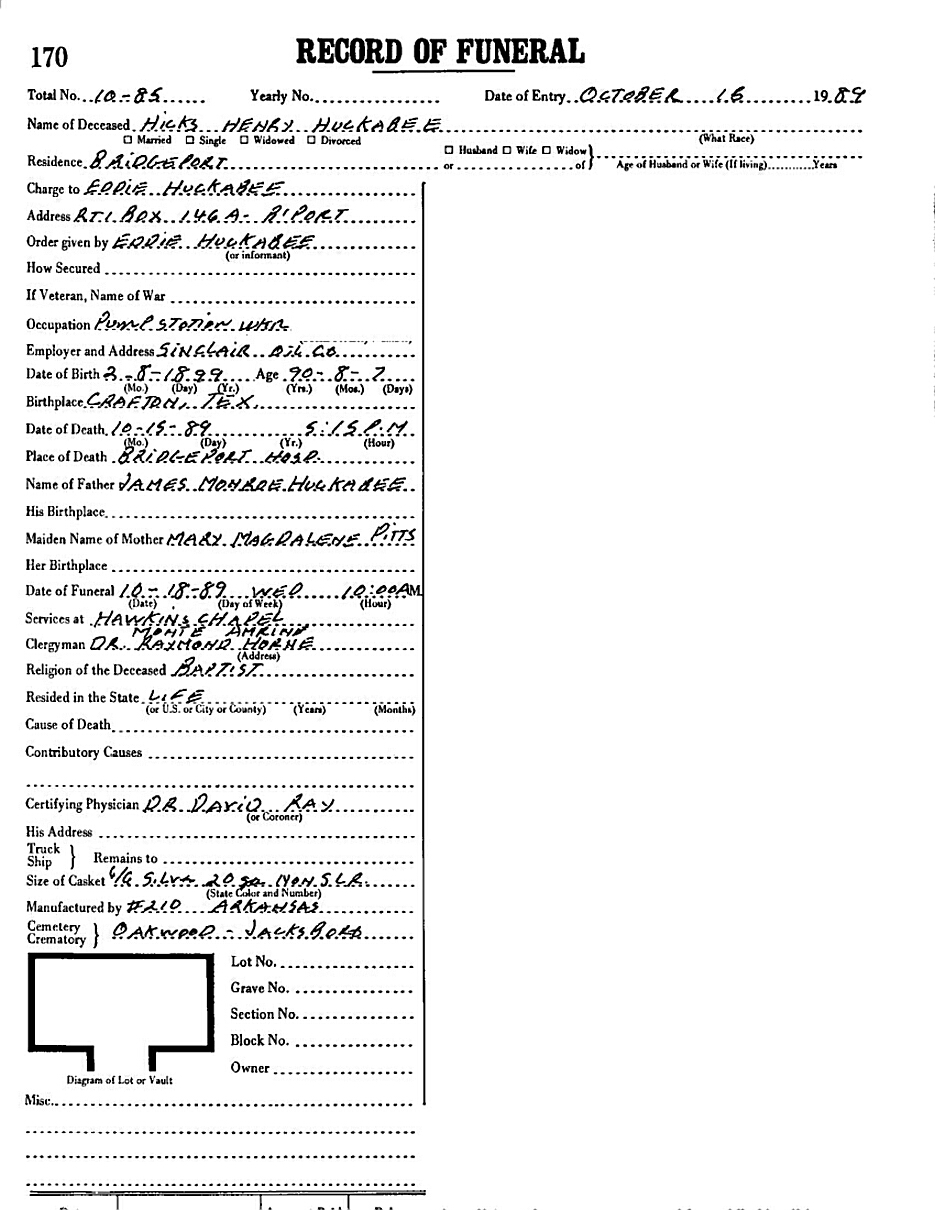 170 RECORD OF FUNERAL
Total No. 10-85 Yearly No. Date of Entry OCTOBER 16 1989
Name of Deceased HICKS HENRY HUCKABEE
☐ Married ☐ Single ☐ Widowed ☐ Divorced (What Race)
☐ Husband ☐ Wife ☐ Widow }
Residence BRIDGEPORT or of Age of Husband or Wife (If living) Years
Charge to EDDIE HUCKABEE
Address RT.1 BOX 146A- B'PORT
Order given by EDDIE HUCKABEE
(or informant)
How Secured
If Veteran, Name of War
Occupation PUMP STATION
Employer and Address SINCLAIR OIL CO.
Date of Birth 3-8-1899 Age 90-8-7
(Mo.) (Day) (Yr.) (Yrs.) (Mos.) (Days)
Birthplace CRAFTON, TEX.
Date of Death 10-15-89 5:15 P.M
(Mo.) (Day) (Yr.) (Hour)
Place of Death BRIDGEPORT HOSP.
Name of Father JAMES MONROE HUCKABEE
His Birthplace
Maiden Name of Mother MARY MAGDALENE PITTS
Her Birthplace
Date of Funeral 10-18-89 WED 10:00AM
(Date) (Day of Week) (Hour)
Services at HAWKINS CHAPEL
MONTE
Clergyman DR. RAYMOND HORNE
(Address)
Religion of the Deceased BAPTIST
Resided in the State LIFE
(or U.S. or City or County) (Years) (Months)
Cause of Death
Contributory Causes
Certifying Physician DR DAVID RAY
(or Coroner)
His Address
Truck
Ship } Remains to
Size of Casket SILVA 20 GA. NON SLR.
(State Color and Number)
Manufactured by #210 ARKANSAS
Cemetery
Crematory } OAKWOOD - JACKSBORO
Lot No.
Grave No.
Section No.
Block No.
Owner
Diagram of Lot or Vault
Misc.